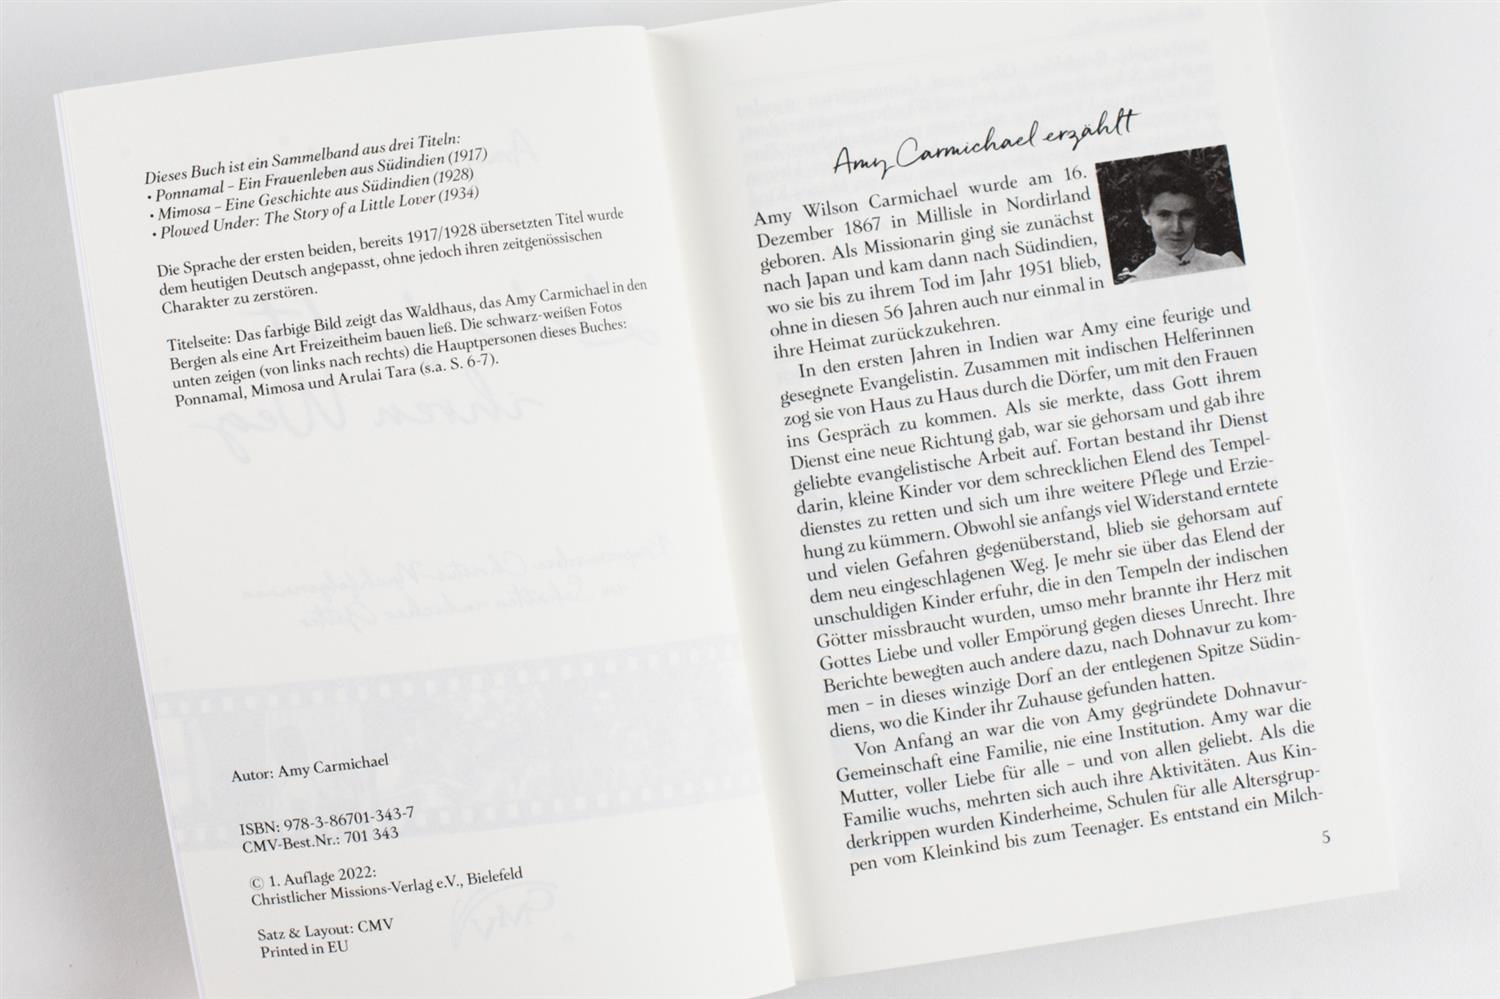 Dieses Buch ist ein Sammelband aus drei Titeln:
• Ponnamal – Ein Frauenleben aus Südindien (1917)
• Mimosa – Eine Geschichte aus Südindien (1928)
• Plowed Under: The Story of a Little Lover (1934)
Die Sprache der ersten beiden, bereits 1917/1928 übersetzten Titel wurde
dem heutigen Deutsch angepasst, ohne jedoch ihren zeitgenössischen
Charakter zu zerstören.
Titelseite: Das farbige Bild zeigt das Waldhaus, das Amy Carmichael in den
Bergen als eine Art Freizeitheim bauen ließ. Die schwarz-weißen Fotos
unten zeigen (von links nach rechts) die Hauptpersonen dieses Buches:
Ponnamal, Mimosa und Arulai Tara (s.a. S. 6-7).
Autor: Amy Carmichael
ISBN: 978-3-86701-343-7
CMV-Best.Nr.: 701 343
© 1. Auflage 2022:
Christlicher Missions-Verlag e.V., Bielefeld
Satz & Layout: CMV
Printed in EU
Amy Carmichael erzählt
Amy Wilson Carmichael wurde am 16.
Dezember 1867 in Millisle in Nordirland
geboren. Als Missionarin ging sie zunächst
nach Japan und kam dann nach Südindien,
wo sie bis zu ihrem Tod im Jahr 1951 blieb,
ohne in diesen 56 Jahren auch nur einmal in
ihre Heimat zurückzukehren.
In den ersten Jahren in Indien war Amy eine feurige und
gesegnete Evangelistin. Zusammen mit indischen Helferinnen
zog sie von Haus zu Haus durch die Dörfer, um mit den Frauen
ins Gespräch zu kommen. Als sie merkte, dass Gott ihrem
Dienst eine neue Richtung gab, war sie gehorsam und gab ihre
geliebte evangelistische Arbeit auf. Fortan bestand ihr Dienst
darin, kleine Kinder vor dem schrecklichen Elend des Tempel-
dienstes zu retten und sich um ihre weitere Pflege und Erzie-
hung zu kümmern. Obwohl sie anfangs viel Widerstand erntete
und vielen Gefahren gegenüberstand, blieb sie gehorsam auf
dem neu eingeschlagenen Weg. Je mehr sie über das Elend der
unschuldigen Kinder erfuhr, die in den Tempeln der indischen
Götter missbraucht wurden, umso mehr brannte ihr Herz mit
Gottes Liebe und voller Empörung gegen dieses Unrecht. Ihre
Berichte bewegten auch andere dazu, nach Dohnavur zu kom-
men – in dieses winzige Dorf an der entlegenen Spitze Südin-
diens, wo die Kinder ihr Zuhause gefunden hatten.
Von Anfang an war die von Amy gegründete Dohnavur-
Gemeinschaft eine Familie, nie eine Institution. Amy war die
Mutter, voller Liebe für alle – und von allen geliebt. Als die
Familie wuchs, mehrten sich auch ihre Aktivitäten. Aus Kin-
derkrippen wurden Kinderheime, Schulen für alle Altersgrup-
pen vom Kleinkind bis zum Teenager. Es entstand ein Milch-
5